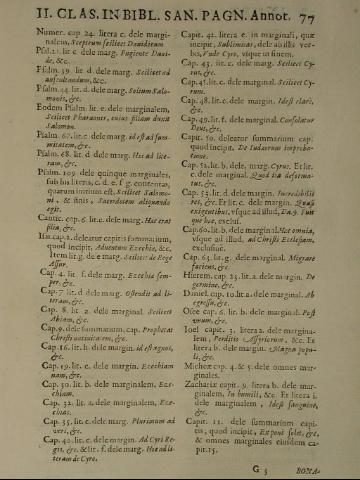 II. CLAS. IN BIBL. SAN. PAGN. Annot. 77
Numer. cap. 24. litera c. dele margi-
nalem, Sceptrum scilicet Dauidicum
Psal. 21. lit c. dele marg. Fugiente Daui-
de, &c.
Psalm. 39. lit. d. dele marg. Scilicet ad
auscultandum, &c.
Psalm. 44. lit. d. dele marg. Solium Salo-
monis, &c.
Eodem Psalm. lit. e. dele marginalem,
Scilicet Pharaonis, cuius filiam duxit
Salomon.
Psalm. 67. lit. c. dele marg. id est ad sum-
mitatem, &c.
Psalm. 68. lit. d. dele marg. Hæc ad lite-
ram, &c.
Psalm. 109. dele quinque marginales,
sub his literis, c. d. e. f. g. contentas,
quarum initium est, Scilicet Salomo-
ni, & finis, Sacerdotem aliquando
egit.
Cantic. cap. 6. lit. c. dele marg. Hæc erat
filia, &c.
Isai. cap. 2. deleatur capitis summarium,
quod incipit, Aduentum Ezechiæ, &c.
Item lit. g. de e marg. Scilicet de Rege
Assur.
Cap. 4. lit. f. dele marg. Ezechia sem-
per, &c.
Cap. 7. lit. d. dele marg. Ostendit ad li-
teram, &c.
Cap. 8. lit. a. dele marginal. Scilicet
Abiam, &c.
Cap. 9. dele summarium, cap. Prophetat
Christi natiuitatem, &c.
Cap. 16. lit. b. dele margin. id est agnos,
&c.
Cap. 19. lit. c. dele margin. Ezechiam
nam, &c.
Cap. 30. lit. b. dele marginalem, Eze-
chiam.
Cap. 32. lit. a. dele marginalem, Eze-
chias.
Cap. 35. lit. c. dele marg. Plurimum ad
veri, &c.
Cap. 40. lit. c. dele margin. Ad Cyri Re-
gis, &c. & lit. f. dele marg. Hæc ad li-
teram de Cyro.
Capit. 42. litera e. in marginali, quæ
incipit, Sublimitas, dele ab illis ver-
bis, Vnde Cyro, vsque in finem.
Cap. 43. lit. c. dele marg. Scilicet Cy-
rus, &c.
Cap. 45. lit. c. dele marginal. Scilicet Cy-
rum.
Cap. 48. lit. c. dele margin. Idest clarè,
&c.
Cap. 49. lit. f. dele marginal. Consolatur
Deus, &c.
Capit. 50. deleatur summarium cap.
quod incipit, De Iudæorum improba-
tione.
Cap. 52. lit. b. dele, marg. Cyrus. Et lit.
c. dele marginal. Quod ita deforma-
tus, &c.
Cap. 53. lit. d. dele margin. Incredibilis
res, &c. Et lit. c. dele margin. Quasi
exigentibus, vsque ad illud, Da. 9. Fuit
quo hæc, exclus.
Cap. 60. lit. b. dele marginal. Hæc omnia,
vsque ad illud, ad Christi Ecclesiam,
exclusiuè.
Cap. 63. lit. g. dele marginal. Migrare
faciens, &c.
Hierem. cap. 23. lit. a. dele margin. De
germine, &c.
Daniel. cap. 10. lit. a. dele marginal. Ab
egressu, &c.
Osee cap. 6. lit. b. dele marginal. Post
vnum, &c.
Ioel capit. 3. litera a. dele margina-
lem, Perditis Assyriorum, &c. Et
litera b. dele margin. Magna popu-
li, &c.
Micheæ cap. 4. & 5. dele omnes mar-
ginales.
Zachariæ capit. 9. litera b. dele mar-
ginalem, In humili, &c. Et litera i.
dele marginalem, Idest sanguine,
&c.
Capit. 11. dele summarium capi-
tis, quod incipit, Exponi solet, &c.
& omnes marginales eiusdem ca-
pit. 15.
G 3 BONA-